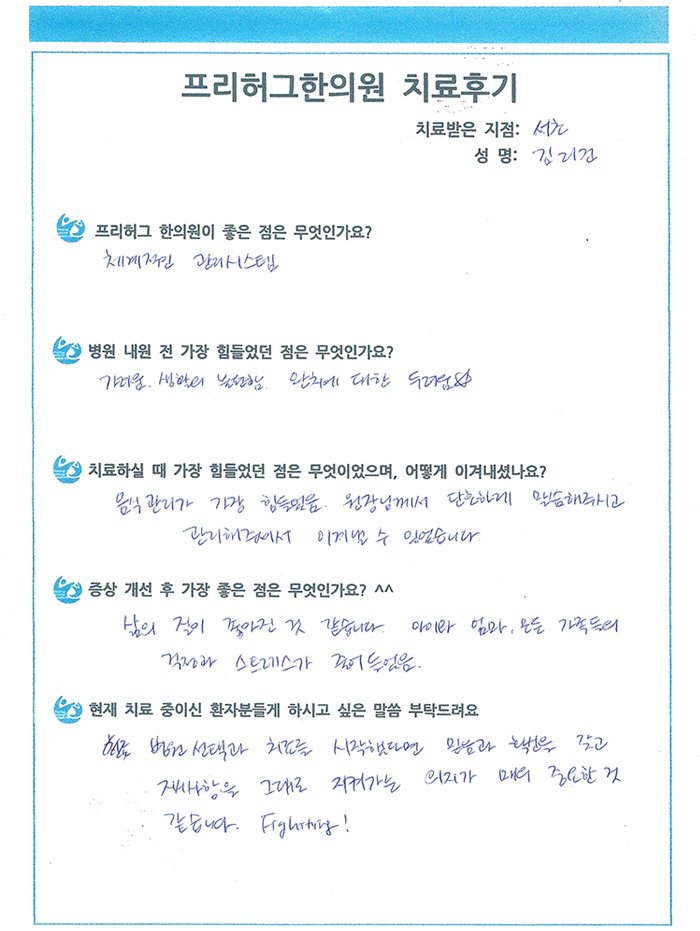 프리허그한의원 치료후기
치료받은 지점: 서초
성 명: 김리건
프리허그 한의원이 좋은 점은 무엇인가요?
체계적인 관리시스템
병원 내원 전 가장 힘들었던 점은 무엇인가요?
가려움. 생활의 불편함. 완치에 대한 두려움
치료하실 때 가장 힘들었던 점은 무엇이었으며, 어떻게 이겨내셨나요?
음식관리가 가장 힘들었음. 원장님께서 단호하게 말씀해주시고
관리해주셔서 이겨낼 수 있었습니다.
증상 개선 후 가장 좋은 점은 무엇인가요? ^^
삶의 질이 좋아진 것 같습니다. 아이와 엄마, 모든 가족들의
걱정과 스트레스가 줄어들었음.
현재 치료 중이신 환자분들게 하시고 싶은 말씀 부탁드려요
병원선택과 치료를 시작했다면 믿음과 확신을 갖고
지시사항을 그대로 지켜가는 의지가 매우 중요한 것
같습니다. Fighting!